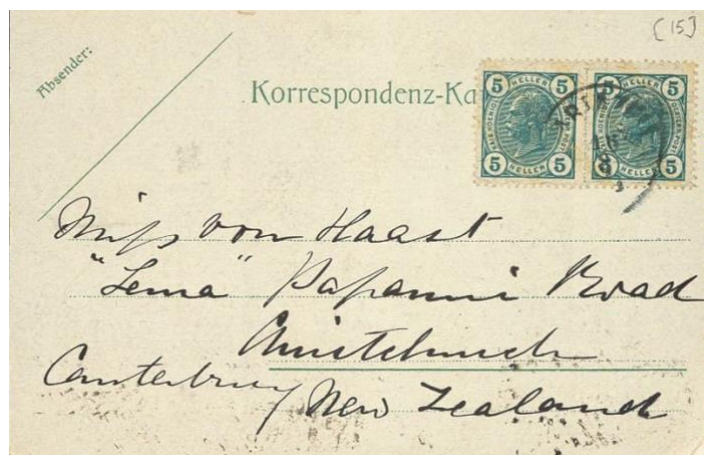 [15]
Absender:
Korrespondenz-Ka
5 HELLER 5
5 HELLER 5
5 5
5 HELLER 5
Miss von Haast
"Lema" Papanui Road
Christchurch
Canterbury
New Zealand